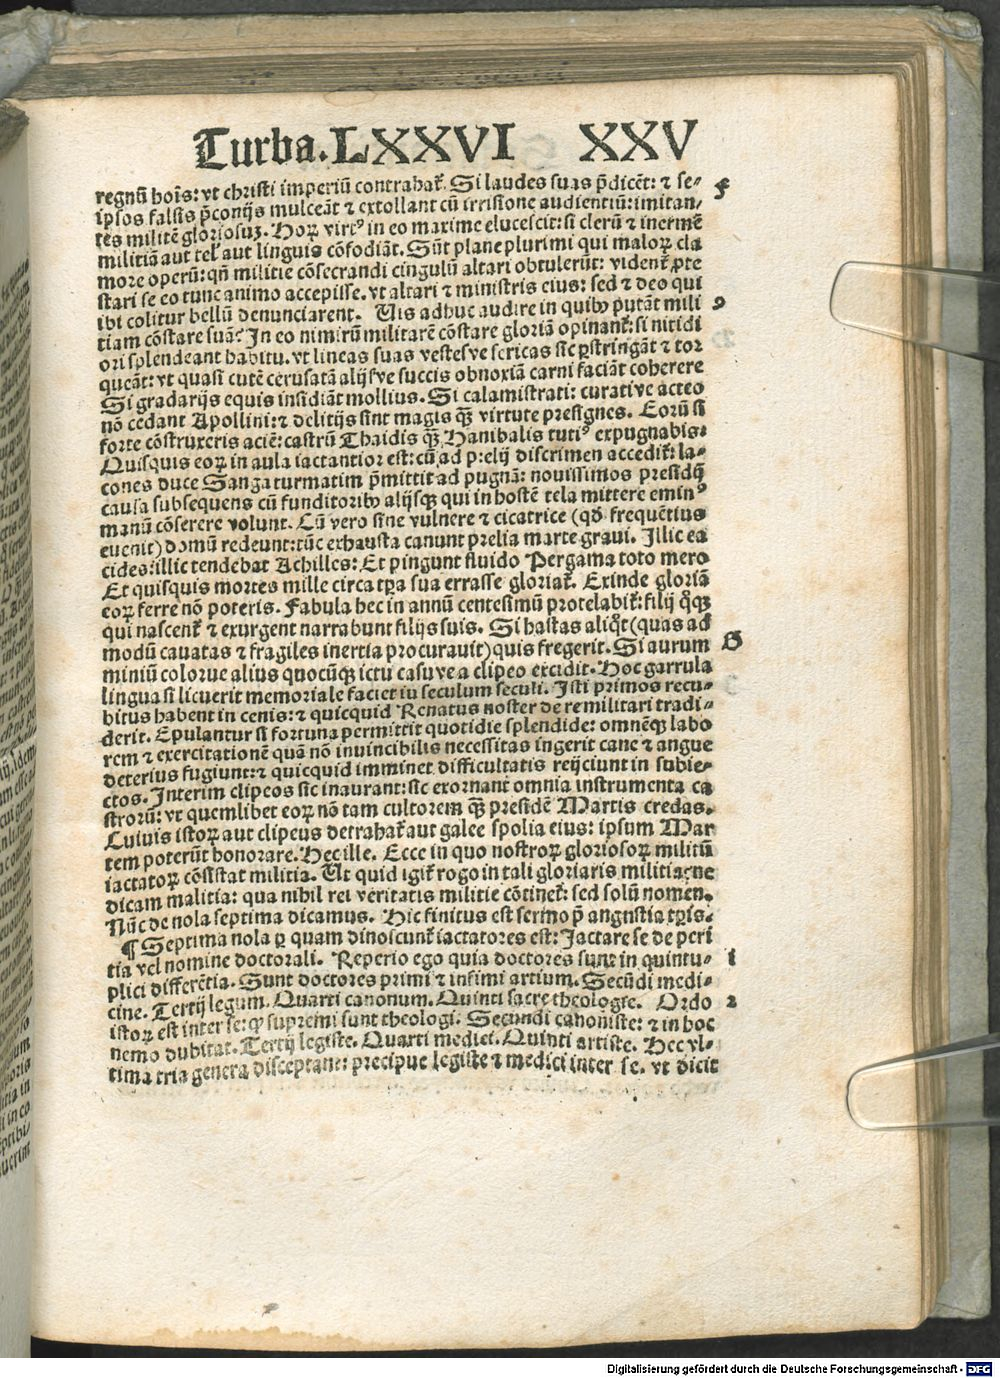 Turba.LXXVI XXV
regnū hoīs: vt christi imperiū contrahaꝉ. Si laudes suas p̄dicēt: ⁊ se⸗ f
ipsos falsis p̄conijs mulceāt ⁊ extollant cū irrisione audientiū: imitan⸗
tes militē gloriosuꝫ. Hoꝝ virtꝰ in eo maxime elucescit: si clerū ⁊ inermē
militiā aut telꝭ aut linguis cōfodiāt. Sūt plane plurimi qui maloꝝ cla
more operū: qn̄ militie cōsecrandi cingulū altari obtulerūt: videnꝉ ꝓte
stari se eo tunc animo accepisse. vt altari ⁊ ministris eius: sed ⁊ deo qui
ibi colitur bellū denunciarent. Uis adhuc audire in quibꝰ putāt mili 9
tiam cōstare suā? In eo nimirū militarē cōstare gloriā opinanꝉ: si nitidi
ori splendeant habitu. vt lineas suas vestesve sericas sic ꝑstringāt ⁊ tor
queāt: vt quasi cutē cerusatā alijsve succis obnoxiā carni faciāt coherere
Si gradarijs equis insidiāt mollius. Si calamistrati: curative acteo
nō cedant Apollini: ⁊ delitijs sint magis qꝫ̄ virtute presignes. Eorū si
forte cōstruxeris aciē: castrū Thaidis qꝫ̄ Hanibalis tutiꝰ expugnabis.
Quisquis eoꝝ in aula iactantior est: cū ad prelij discrimen accediꝉ: la⸗
cones duce Sanga turmatim p̄mittit ad pugnā: novissimos presidij
causa subsequens cū funditoribꝰ alijsqꝫ qui in hostē tela mittere eminꝰ
manū cōserere volunt. Cū vero sine vulnere ⁊ cicatrice (qd̄ frequētius
euenit) domū redeunt: tūc exhausta canunt prelia marte gravi. Illic ea
cides: illic tendebat Achilles: Et pingunt fluido Pergama toto mero
Et quisquis mortes mille circa tp̄a sua errasse gloriaꝉ. Exinde gloriā
eoꝝ ferre nō poteris. Fabula hec in annū centesimū protelabiꝉ: filij qͦqꝫ
qui nascenꝉ ⁊ exurgent narrabunt filijs suis. Si hastas aliqͦt (quas ad
modū cavatas ⁊ fragiles inertia procuravit) quis fregerit. Si aurum G
miniū colorve alius quocūqꝫ ictu casuve a clipeo excidit. Hoc garrula
lingua si licuerit memoriale faciet in seculum seculi. Isti primos recu⸗
bitus habent in cenis: ⁊ quicquid Renatus noster de re militari tradi⸗
derit. Epulantur si fortuna permittit quotidie splendide: omnēqꝫ labo
rem ⁊ exercitationē quā nō invincibilis necessitas ingerit cane ⁊ angue
deterius fugiunt: ⁊ quicquid imminet difficultatis reijciunt in subie⸗
ctos. Interim clipeos sic inaurant: sic exornant omnia instrumenta ca
strorū: vt quemlibet eoꝝ nō tam cultorem qꝫ̄ presidē Martis credas.
Cuiuis istoꝝ aut clipeus detrahaꝉ aut galee spolia eius: ipsum Mar
tem poterūt honorare. Hec ille. Ecce in quo nostroꝝ gloriosoꝝ militū
iactatoꝝ cōsistat militia. Ut quid igiꝉ rogo in tali gloriaris militia: ne
dicam malitia: qua nihil rei veritatis militie cōtineꝉ: sed solū nomen.
Nūc de nola septima dicamus. Hic finitus est sermo p̄ angustia tp̄is.
¶ Septima nola ꝑ quam dinoscunꝉ iactatores est: Jactare se de peri
tia vel nomine doctorali. Reperio ego quia doctores sunt in quintu⸗ 1
plici differētia. Sunt doctores primi ⁊ infimi artium. Secūdi medi⸗
cine. Tertij legum. Quarti canonum. Quinti sacre theologie. Ordo 2
istoꝝ est inter se: qꝫ supremi sunt theologi. Secundi canoniste: ⁊ in hoc
nemo dubitat. Tertij legiste. Quarti medici. Quinti artiste. Hec vl⸗
tima tria genera disceptant: precipue legiste ⁊ medici inter se. vt dicit
Digitalisierung gefördert durch die Deutsche Forschungsgemeinschaft - DFG